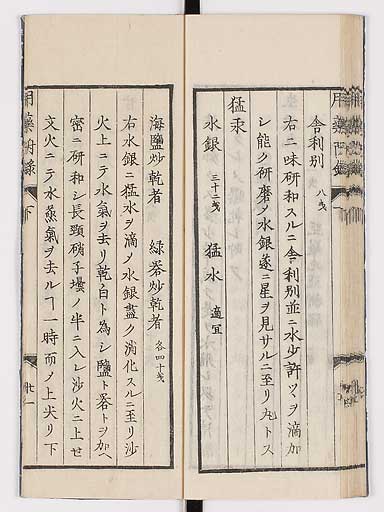 舎利別 八戔
右二味研和スルニ舎利別並ニ水少許ツヽヲ滴加
シ能ク研磨メ水銀遂ニ星ヲ見サルニ至リ丸トス
猛汞
水銀 三十二戔 猛水 適宜
海鹽炒乾者 緑礬炒乾者 各四十戔
右水銀ニ猛水ヲ滴メ水銀盡ク消化スルニ至リ沙
火上ニテ水氣ヲ去リ乾白ト為シ鹽ト礬トヲ加ヘ
密ニ研和シ長頸硝子壜ノ半ニ入レ沙火ニ上セ
文火ニテ水蒸氣ヲ去ルヿ一時而メ上尖リ下
用藥附録 下 廿一